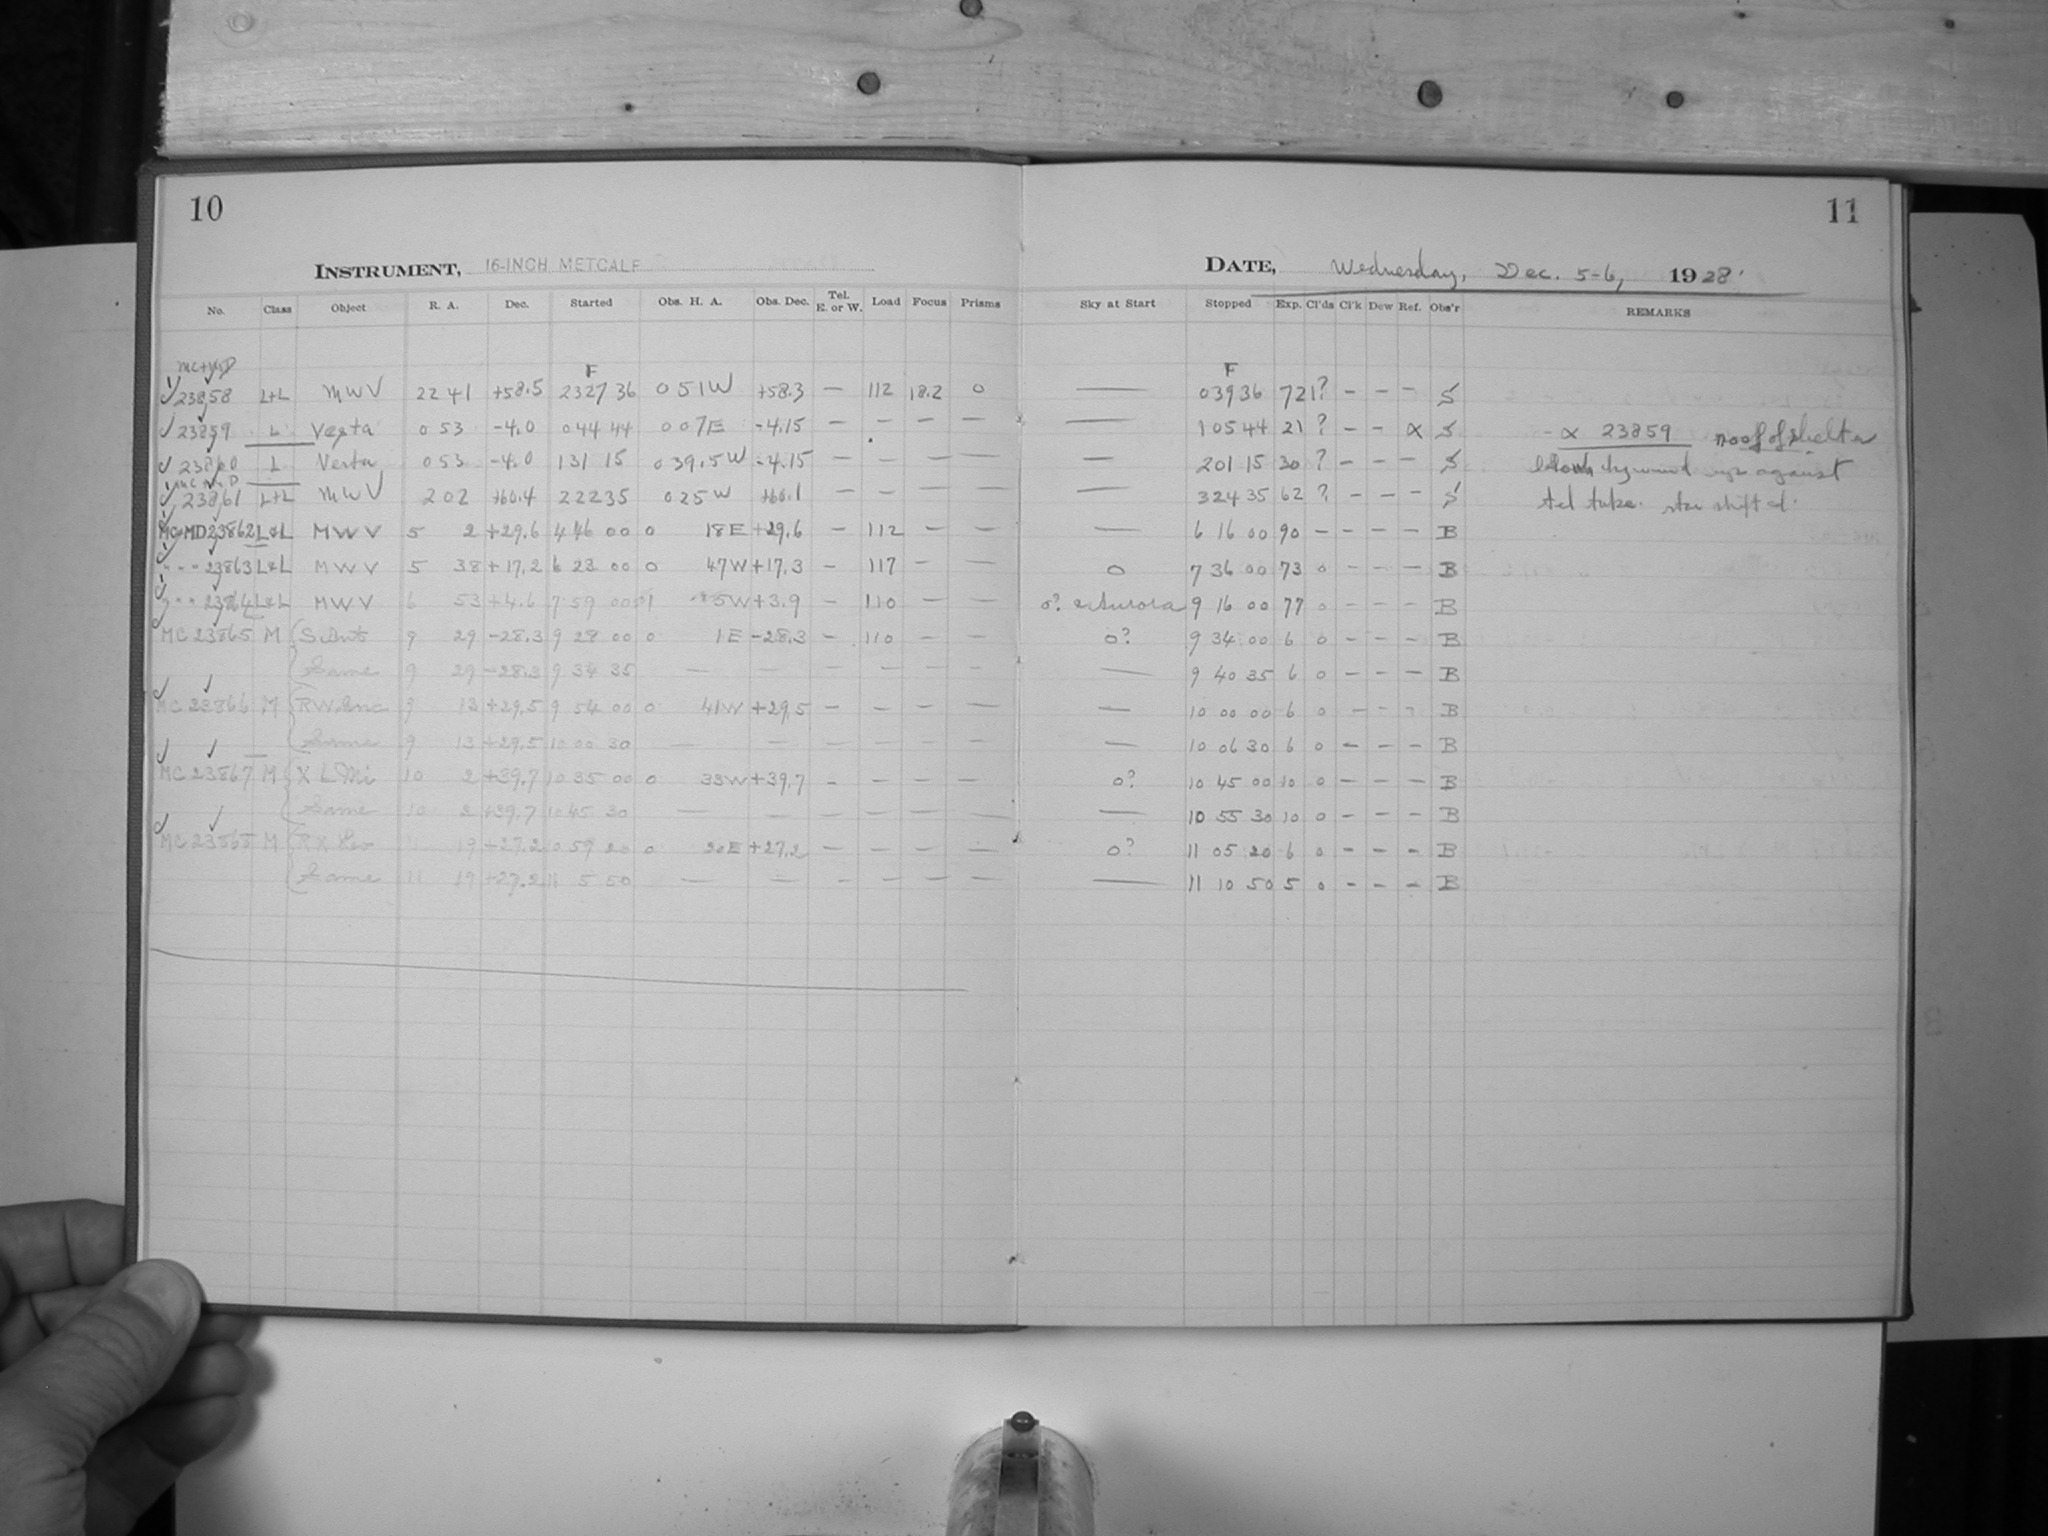 10
11
INSTRUMENT, 16-INCH METCALF
DATE, Wednesday, Dec. 5-6, 1928
No. Class Object R. A. Dec. Started Obs. H. A. Obs. Dec. Tel. E. or W. Load Focus Prisms Sky at Start Stopped Exp. Cl'ds Cl'k Dew Ref. Obs'r REMARKS
F F
23858 L+L MWV 22 41 +58.5 23 27 36 0 51W +58.3 — 112 18.2 0 — 0 39 36 72 1? - - - S
23859 L Vesta 0 53 -4.0 0 44 44 0 07E -4.15 — — — — — 1 05 44 21 ? - - α S - α 23859 roof of shelter
23860 L Vesta 0 53 -4.0 1 31 15 0 39.5W -4.15 — — — — — 2 01 15 30 ? - - - S by wind up against
23861 L+L MWV 2 02 +60.4 2 22 35 0 25W +60.1 — — — — — 3 24 35 62 ? - - - S tel tube. star shifted.
MC+MD 23862 L&L MWV 5 2 +29.6 4 46 00 0 18E +29.6 — 112 — — — 6 16 00 90 - - - - B
" " " 23863 L&L MWV 5 38 +17.2 6 23 00 0 47W +17.3 - 117 - — 0 7 36 00 73 0 - - - B
" " 23864 L&L MWV 6 53 +4.6 7 59 00 5W +3.9 - 110 — — 0? Aurora 9 16 00 77 0 - - - B
MC 23865 M S Ant 9 29 -28.3 9 28 00 0 1E -28.3 — 110 — — 0? 9 34 00 6 0 - - - B
Same 9 29 -28.3 9 34 35 — — — — — — — 9 40 35 6 0 - - - B
MC 23866 M RW Cnc 9 13 +29.5 9 54 00 0 41W +29.5 — - — — — 10 00 00 6 0 - - - B
Same 9 13 +29.5 10 00 30 — — — — — — — 10 06 30 6 0 - - - B
MC 23867 M X L Mi 10 2 +39.7 10 35 00 0 33W +39.7 - - — — 0? 10 45 00 10 0 - - - B
Same 10 2 +39.7 10 45 30 — — — — — — — 10 55 30 10 0 - - - B
MC 23868 M RX Leo 19 +27.2 10 59 20 0 20E +27.2 — — — — 0? 11 05 20 6 0 - - - B
Same 11 19 +27.2 11 5 50 — — - — — — — 11 10 50 5 0 - - - B